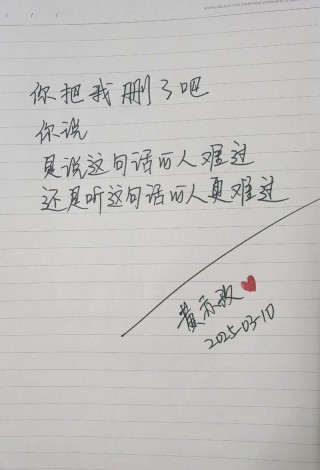 你把我删了吧
你说
是说这句话的人难过
还是听这句话的人更难过
2025-03-10